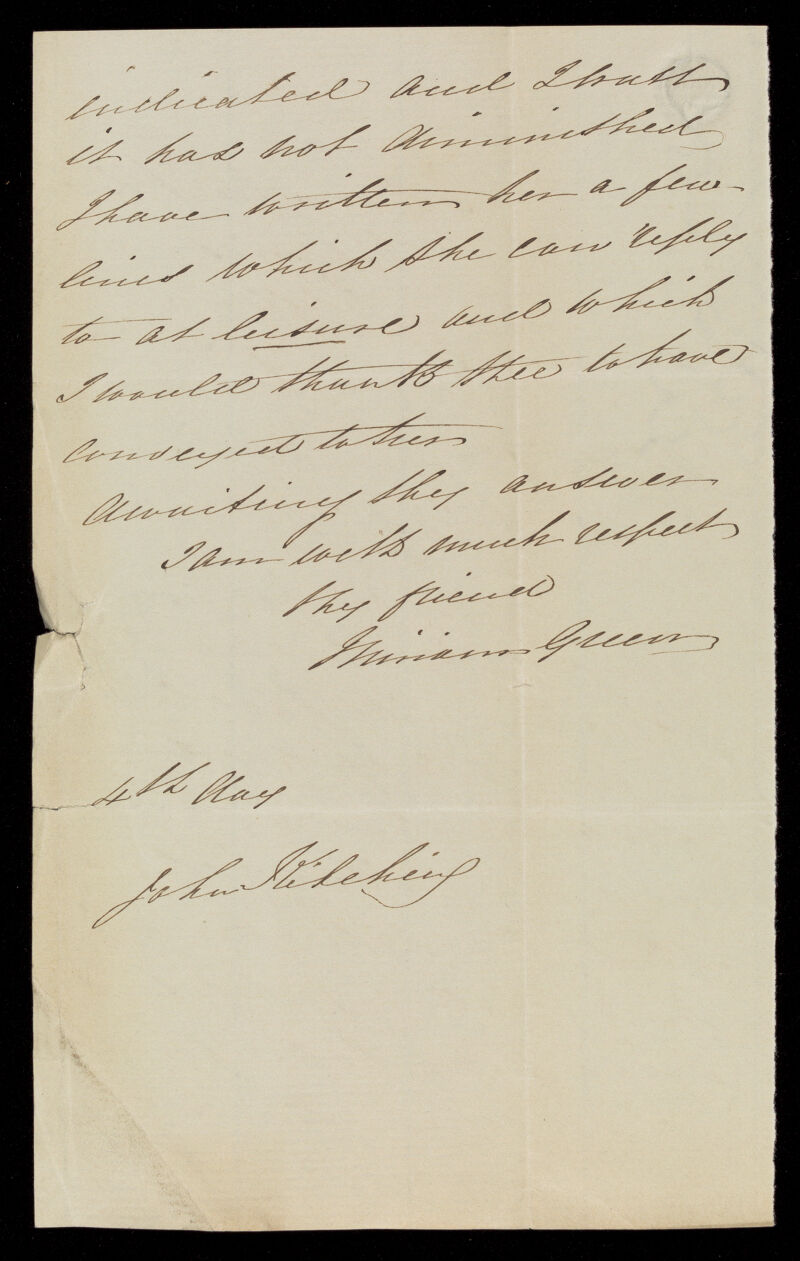 indicated and I trust
it has not diminished
I have written her a few
lines which she can reply
to at leisure and which
I would thank thee to have
conveyed to her
Awaiting thy answer
I am with much respect
thy friend
Miriam Green
4th day
John Kitching